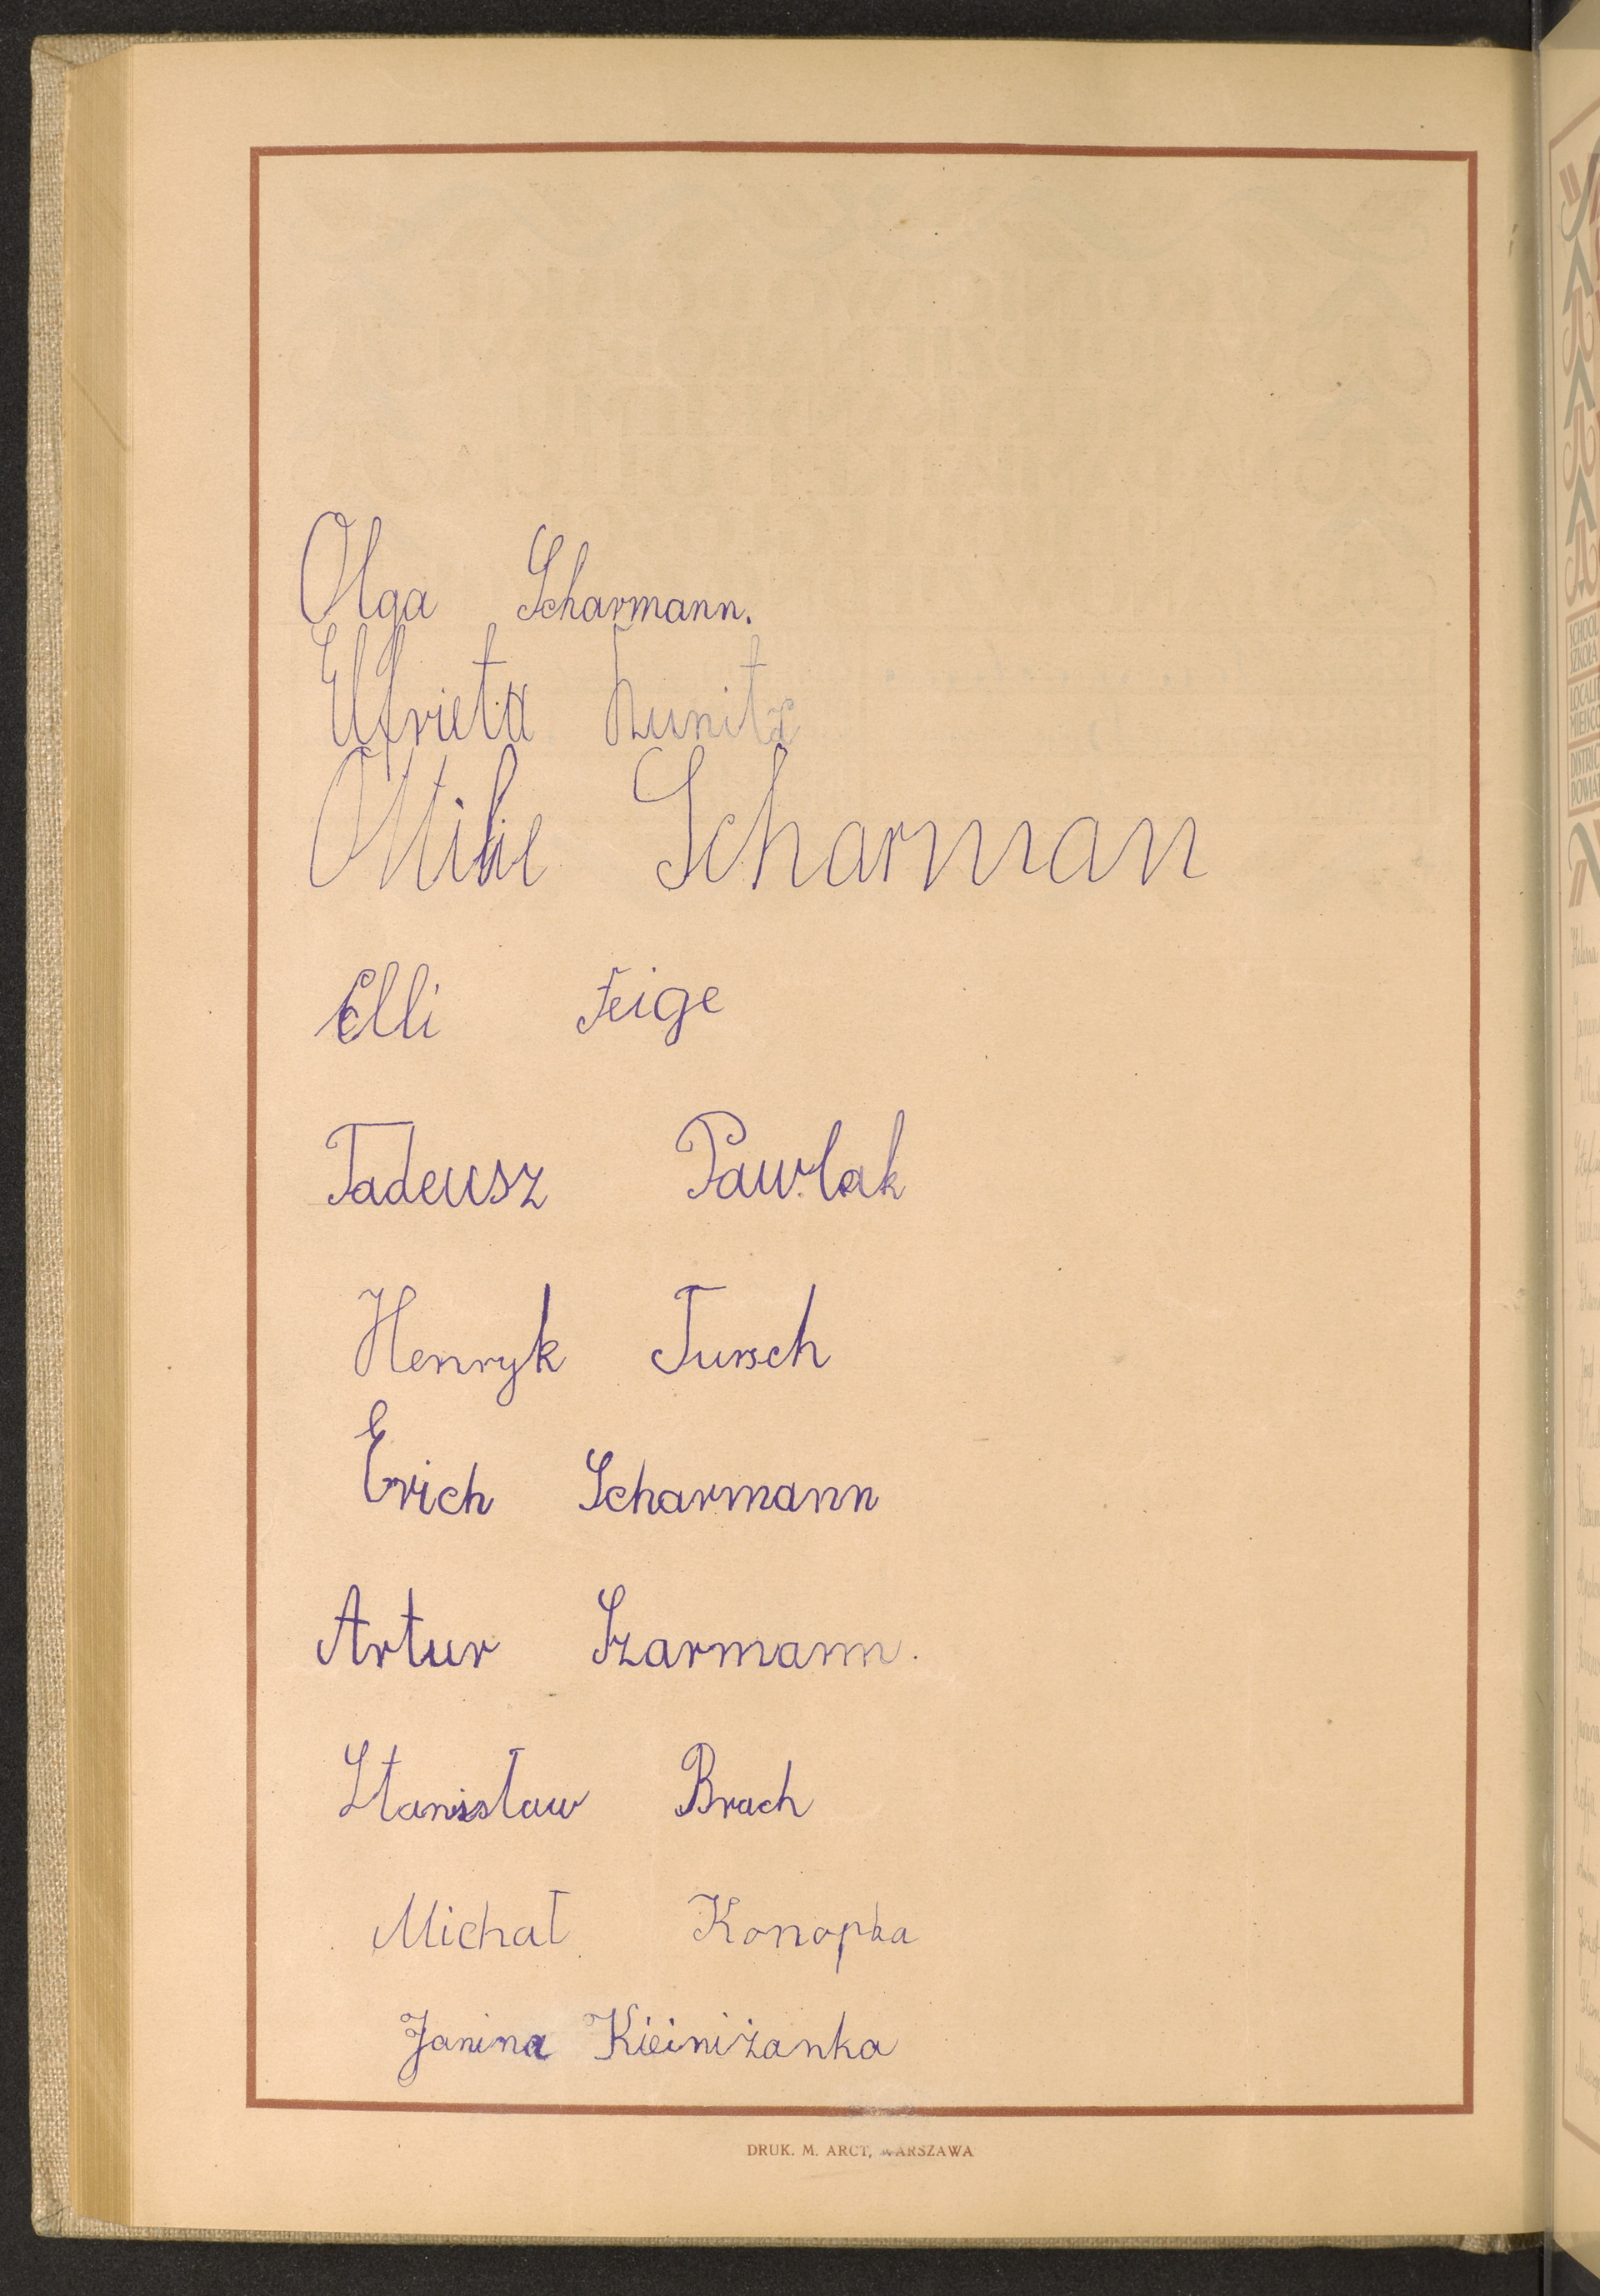 Olga Scharmann.
Elfrieta
Ottilie Scharman
Elli Feige
Tadeusz Pawlak
Henryk Tursch
Erich Scharmann
Artur Szarmann.
Stanisław Brach
Michał Konopka
Janina Kieiniżanka
DRUK. M. ARCT, WARSZAWA